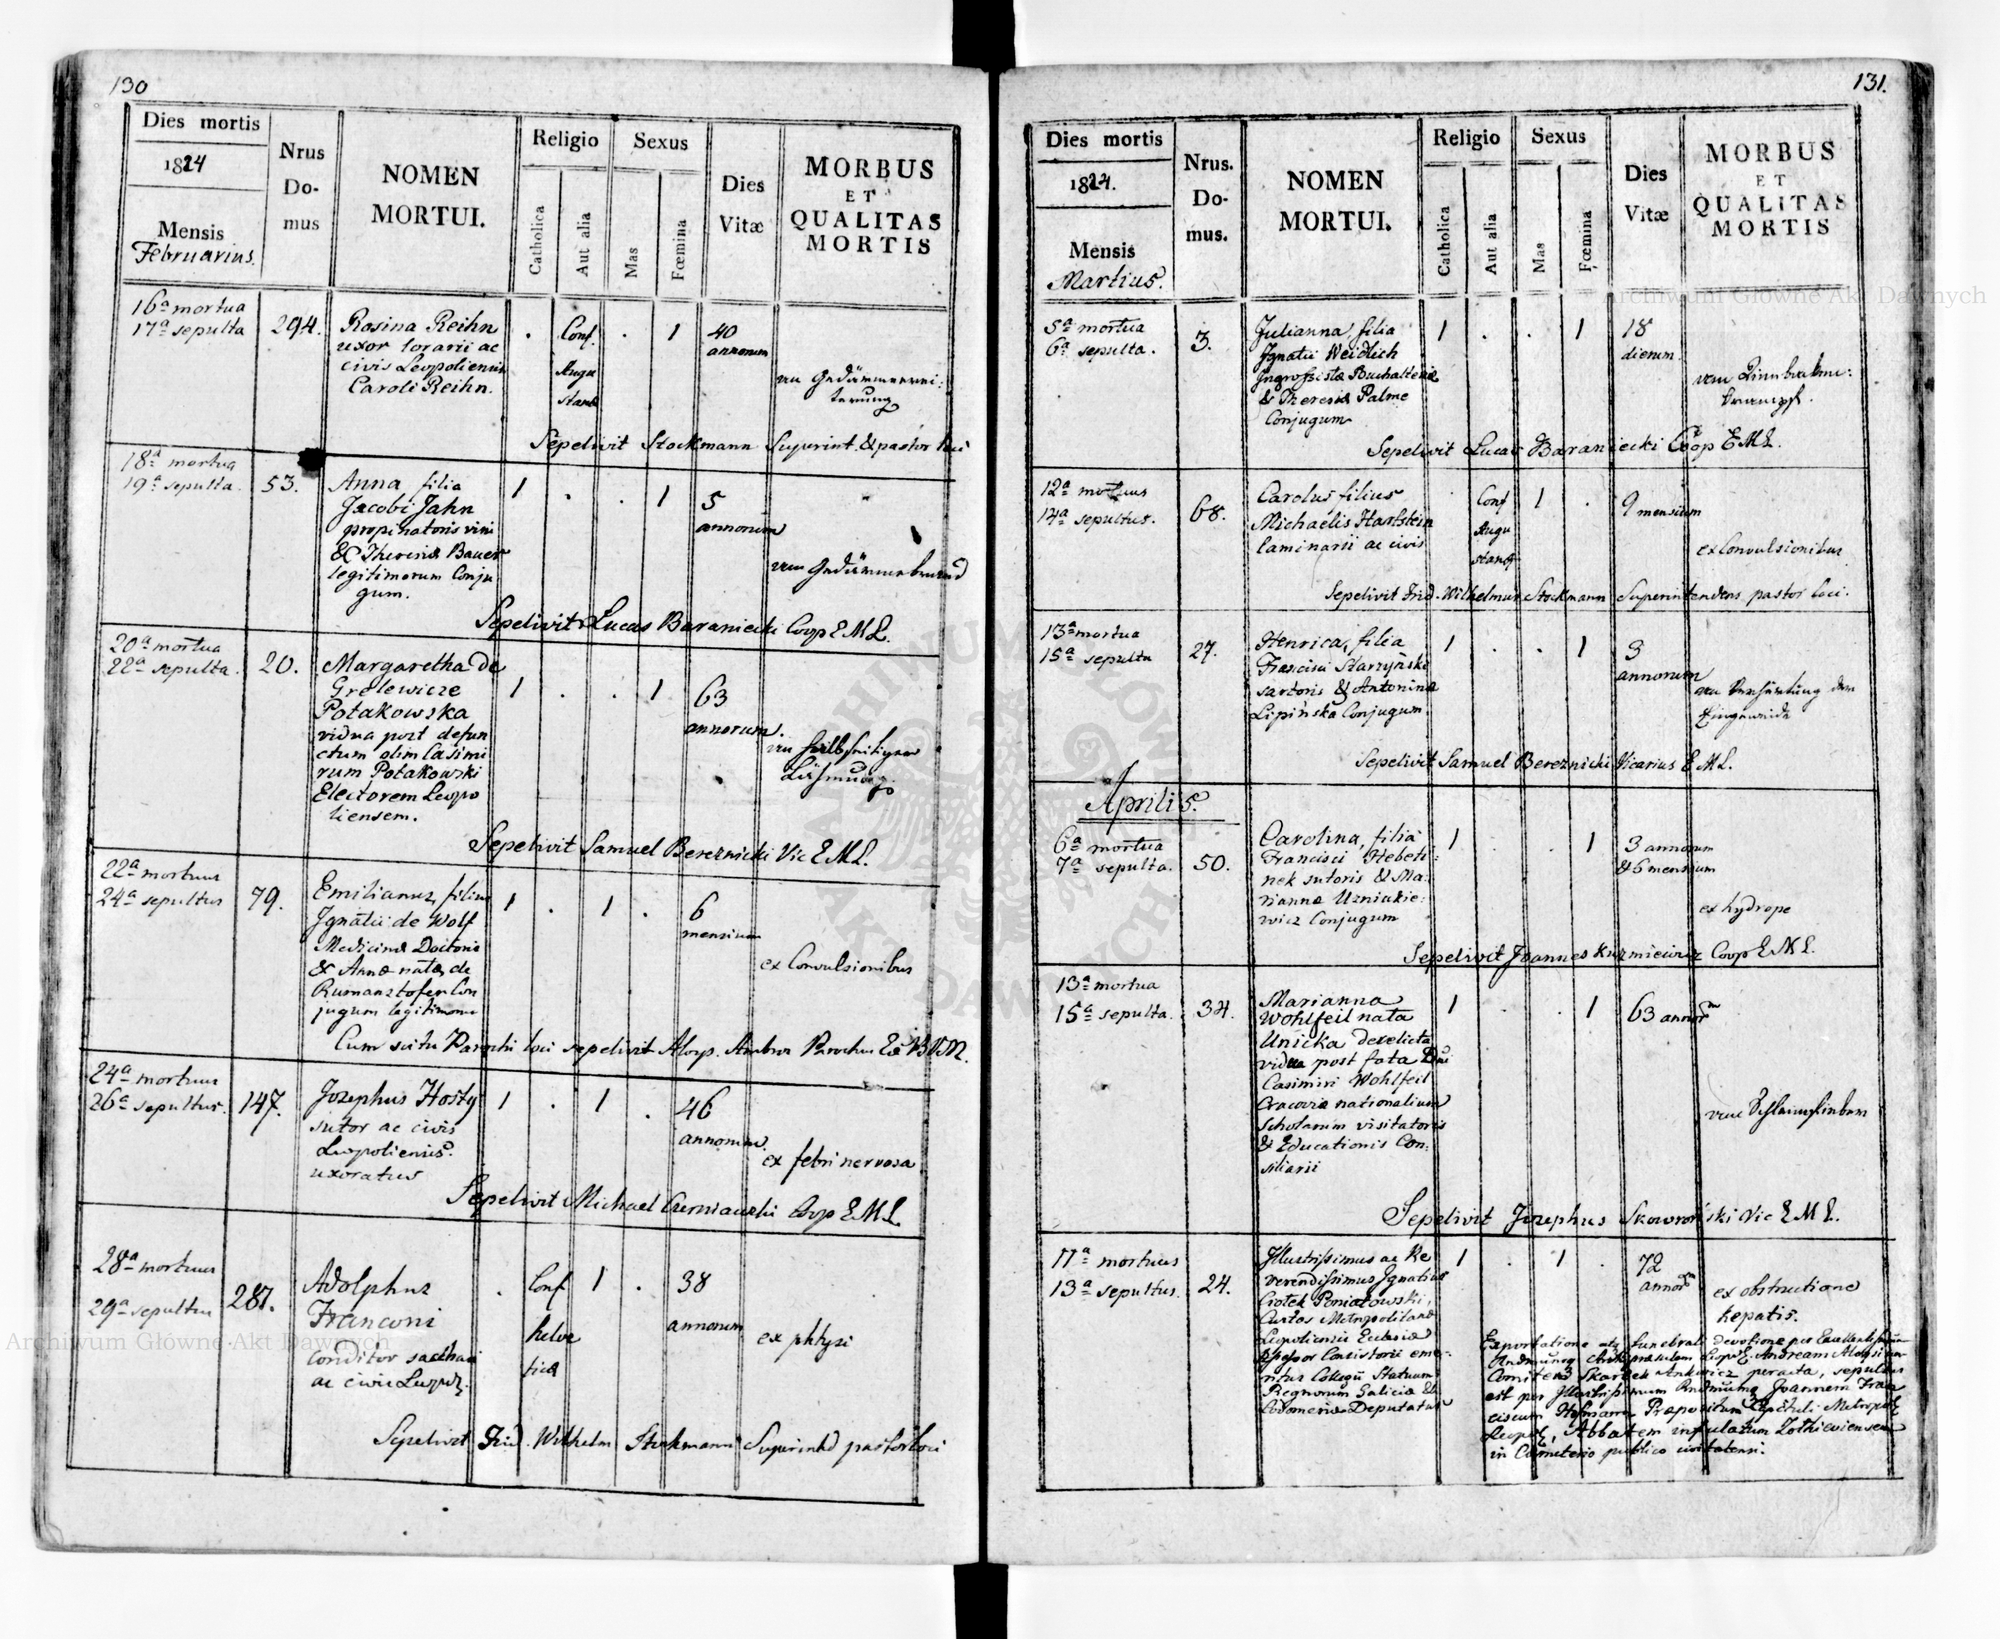 130
Dies mortis
1824
Mensis
Februarius.
Nrus
Do-
mus
NOMEN
MORTUI.
Religio
Catholica
Aut alia
Sexus
Mas
Fœmina
Dies
Vitæ
MORBUS
ET
QUALITAS
MORTIS
16ª mortua
17ª sepulta
294.
Rosina Reihn
uxor lorarii ac
civis Leopoliensis
Caroli Reihn.
. Conf. . 1
Augu
stanæ
40
annorum
von Gedärmeverei:
terung
Sepelivit Stockmann Superint. & pastor loci
18ª mortua
19ª sepulta.
53.
Anna filia
Jacobi Jahn
propinatoris vini
& Theresiæ Bauer
legitimorum Conju
gum.
1 . . 1
5
annorum
vom Gedärmebrand
Sepelivit Lucas Baraniecki Coop E M L.
20ª mortua
22ª sepulta.
20.
Margaretha de
Grelewicze
Potakowska
vidua post defun
ctum olim Casimi
rum Potakowski
Electorem Leopo
liensem.
1 . . 1
63
annorum.
von halbseitiger
Lähmung.
Sepelivit Samuel Bereznicki Vic E M L.
22ª mortuus
24ª sepultus
79.
Emilianus, filius
Ignatii de Wolf
Medicinæ Doctoris
& Annæ natæ de
Rumanstofer Con
jugum legitimorum
1 . 1 .
6
mensium
ex Convulsionibus
Cum scitu Parochi loci sepelivit Aloys. Ambros Parochus
24ª mortuus
26ª sepultus.
147.
Josephus Hosty
sutor ac civis
Leopoliensis.
uxoratus
1 . 1 .
46
annorum.
ex febri nervosa
Sepelivit Michael Coop E M L.
28ª mortuus
29ª sepultus
287.
Adolphus
Franconi
conditor sacchari
ac civis Leopol.
. Conf 1 .
helve
ticæ
38
annorum
ex phtysi
Sepelivit Frid. Wilhelm Stockmann Superintd pastor loci
131.
Dies mortis
1824.
Mensis
Martius.
Nrus.
Do-
mus.
NOMEN
MORTUI.
Religio
Catholica
Aut alia
Sexus
Mas
Fœmina
Dies
Vitæ
MORBUS
ET
QUALITAS
MORTIS
5ª mortua
6ª sepulta.
3.
Julianna, filia
Ignatii Weidlich
Ingrossistæ Buchalteriæ
& Theresiæ Palme
Conjugum
1 . . 1
18
dierum.
vom Kinnbacken:
krampf.
Sepelivit Lucas Baraniecki Coop E M L.
12ª mortuus
14ª sepultus.
68.
Carolus filius
Michaelis Hartstein
laminarii ac civis
. Conf 1 .
Augu
stanæ
9 mensium
ex Convulsionibus
Sepelivit Frid. Wilhelmus Stockmann Superintendens pastor loci.
13ª mortua
15ª sepulta
27.
Henrica, filia
Francisci Starzyński
sartoris & Antonina
Lipińska Conjugum.
1 . . 1
3
annorum
von Verhärtung der
Eingeweide
Sepelivit Samuel Bereznicki Vicarius E M L.
Aprilis.
6ª mortua
7ª sepulta.
50.
Carolina, filia
Francisci Hebeti:
nek sutoris & Ma:
riannæ Uzniakie:
wicz Conjugum
1 . . 1
3 annorum
& 6 mensium
ex hydrope
Sepelivit Joannes Kuzmiewicz Coop E M L.
13ª mortua
15ª sepulta.
34.
Marianna
Wohlfeil nata
Unicka derelicta
vidua post fata Dni
Casimiri Wohlfeil
Cracoviæ nationalium
scholarum visitatoris
& Educationis Con:
siliarii
1 . . 1
63 annorm
vom Schleimfieber
Sepelivit Josephus Skowroński Vic E M L.
11ª mortuus
13ª sepultus.
24.
Illustrissimus ac Re
verendissimus Ignatius
Ciołek Poniatowski,
Custos Metropolitanæ
Leopoliensis Ecclesiæ
Assessor Consistorii eme:
ritus Collegii Statuum
Regnorum Galiciæ &
Lodomeriæ Deputatus
1 . 1 .
72
annorm
ex obstructione
hepatis.
Exportatione atq funebrali devotione per Excellentissimum
Rndmumq Archipræsulem Leopol. Andream Aloysium
Comitem Skarbek Ankwicz peracta, sepultus
est per Illustrissimum Rndmumq Joannem Fran
ciscum Hofmann Præpositum Capituli Metropol.
Leopol., Abbatem infulatum Zolkieviensem
in Cœmeterio publico civitatensi.
Archiwum Główne Akt Dawnych
Archiwum Główne Akt Dawnych
ARCHIWUM GŁÓWNE
AKT DAWNYCH